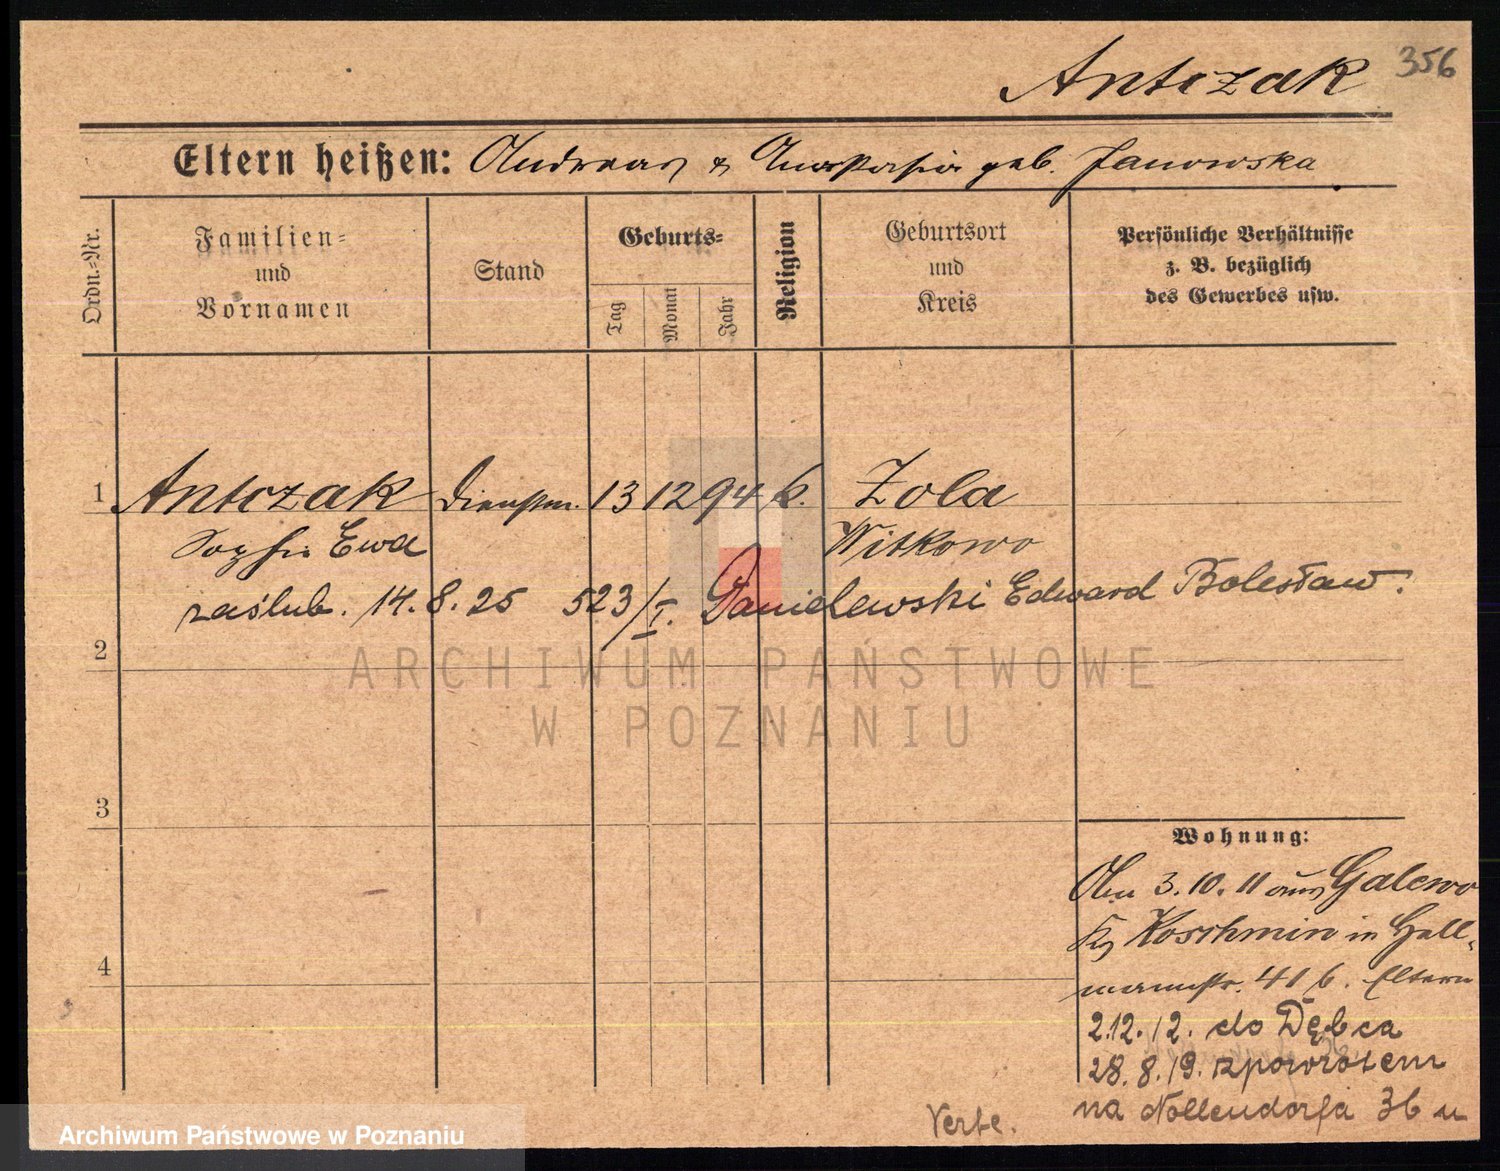 Antczak 356
Eltern heißen: Andreas & Anastasia geb. Janowska
Ordn.-Nr.
Familien- und Vornamen
Stand
Geburts-
Tag
Monat
Jahr
Religion
Geburtsort und Kreis
Persönliche Verhältnisse
z. B. bezüglich
des Gewerbes usw.
1 Antczak Dienstm. 13 12 94 k. Zola
Ewa Witkowo
zaślub. 14.8.25 523/I. Danielewski Edward Bolesław.
2
ARCHIWUM PAŃSTWOWE
W POZNANIU
3
Wohnung:
3.10.11 aus Galewo
Koschmin in Hell-
4
mannstr. 41 b. Eltern
2.12.12. do Dębca
28.8.19. z powrotem
na Nollendorfa 36 u
Verte.
Archiwum Państwowe w Poznaniu